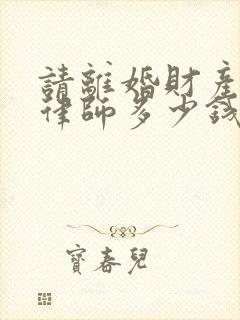 請離婚財產
律師多少錢
寶春兒